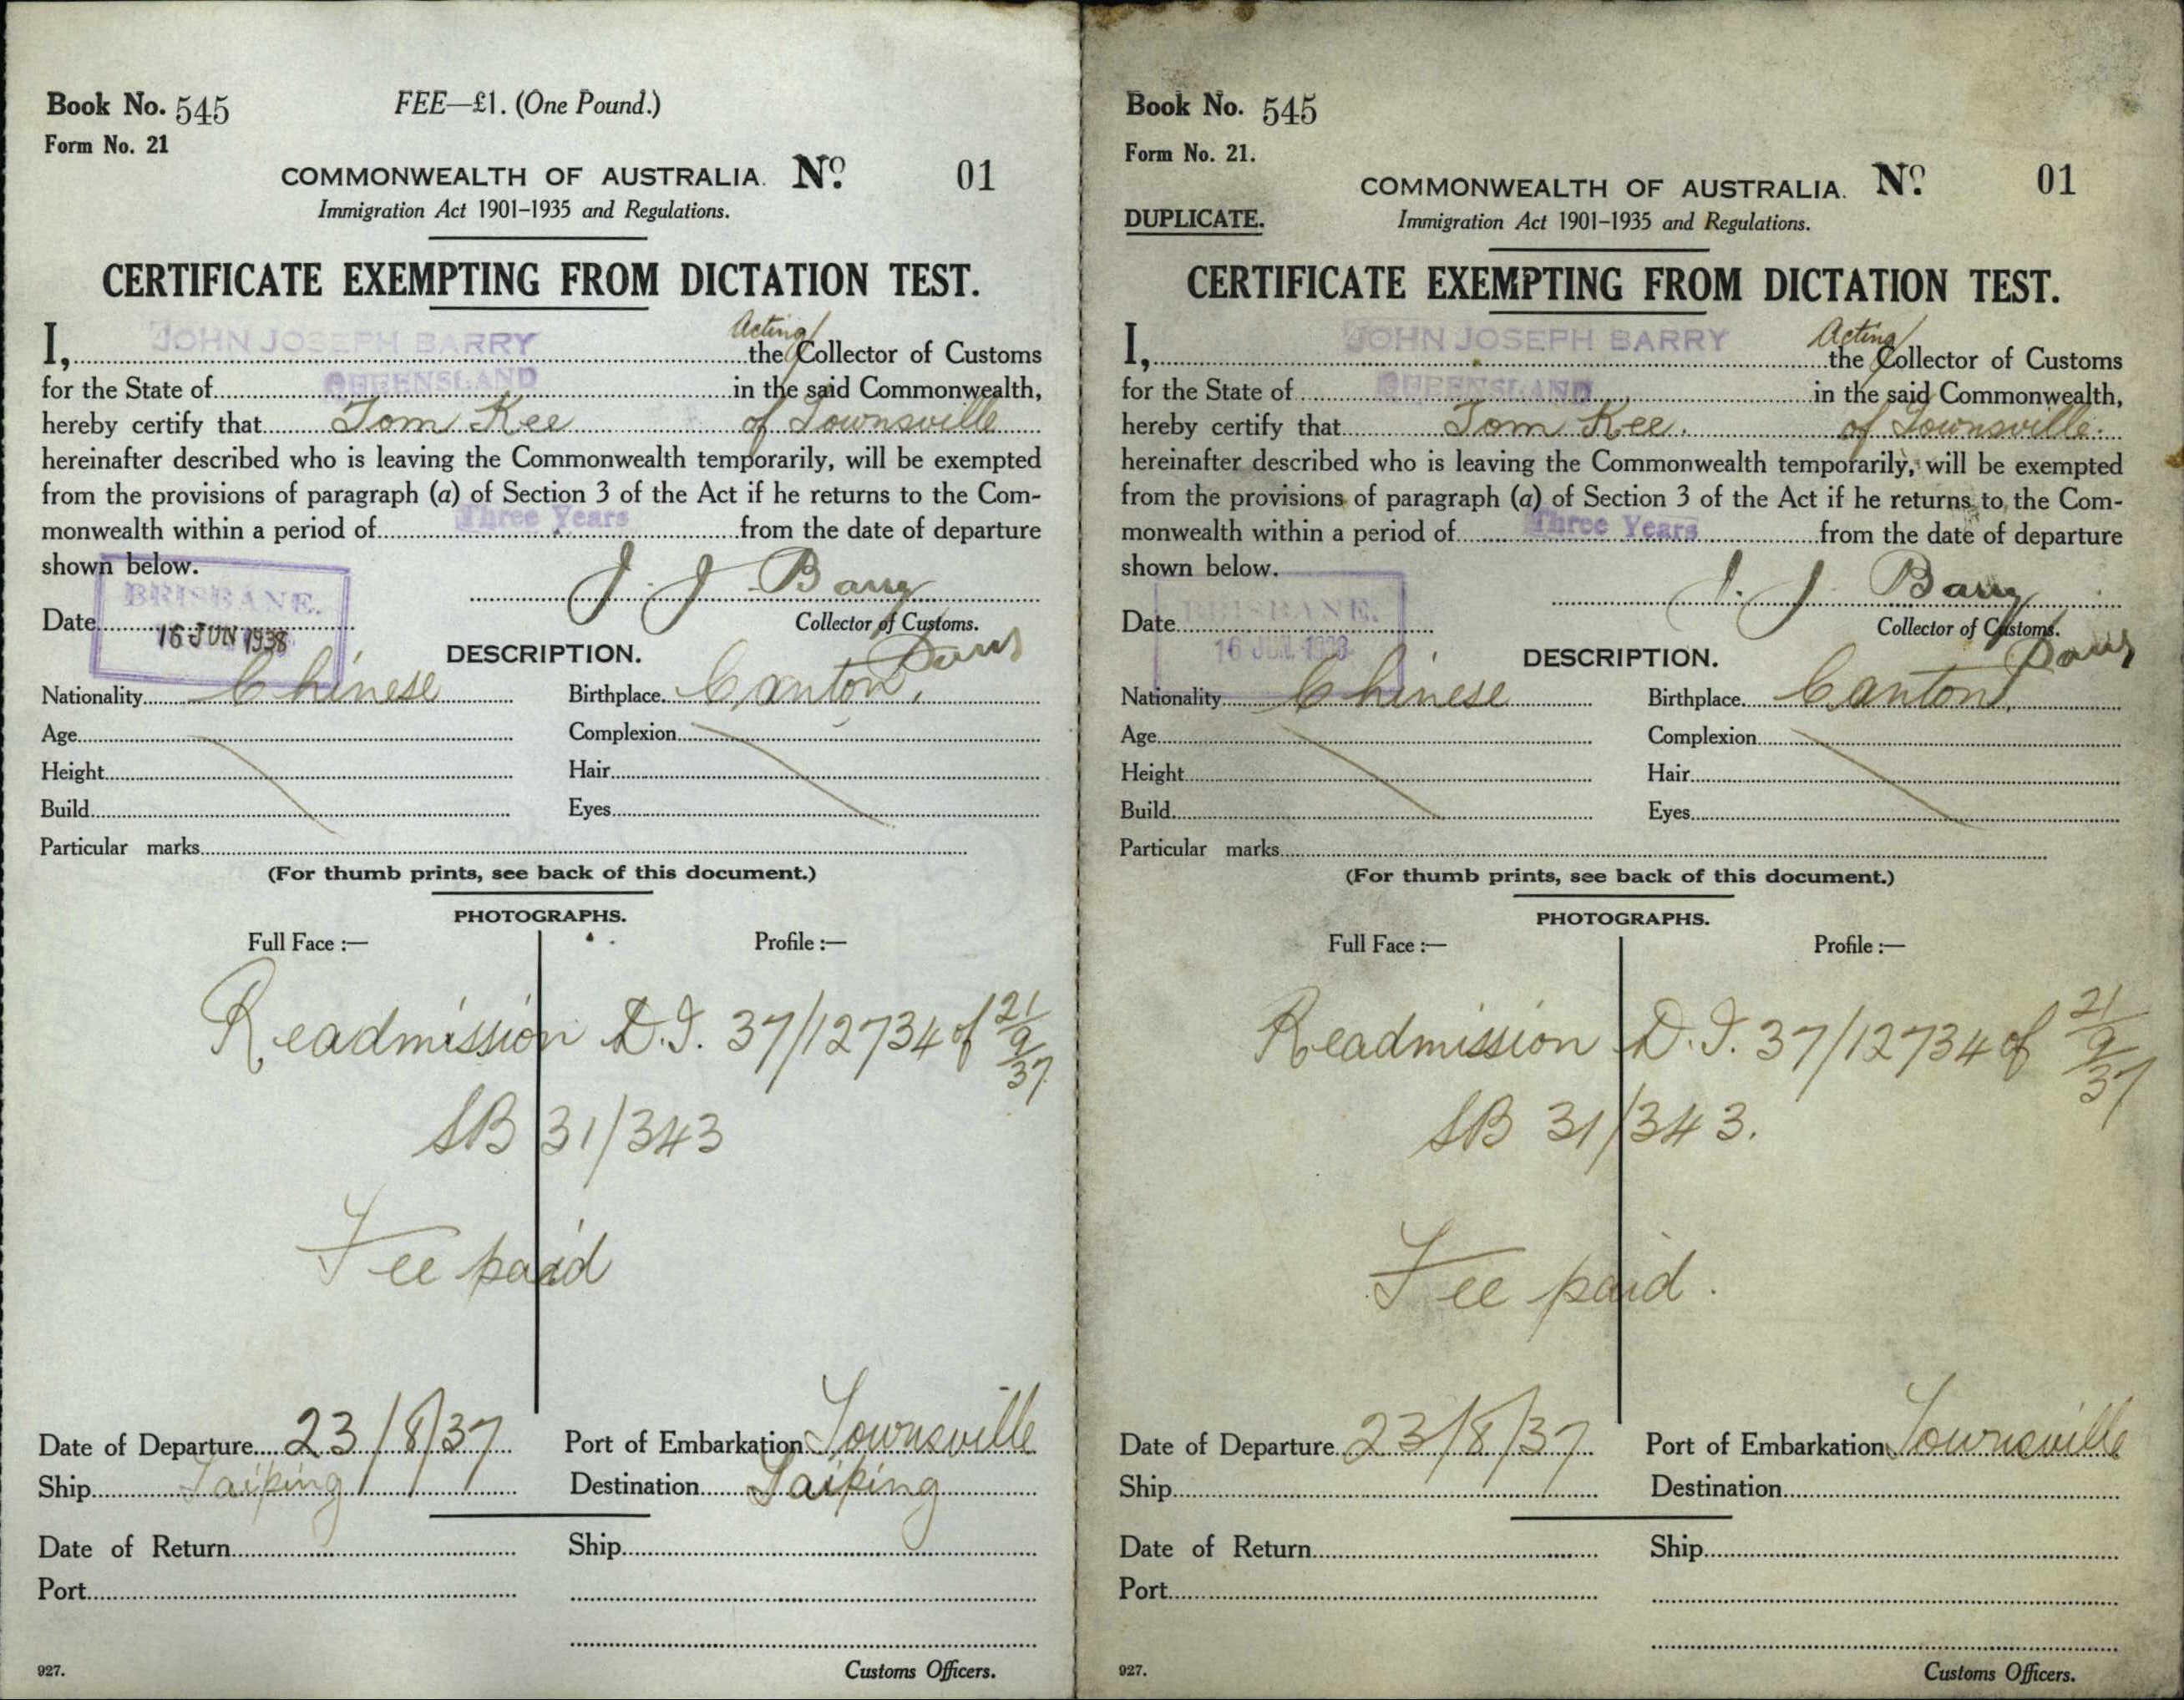 Book No. 545
FEE—£1. (One Pound.)
Form No. 21
COMMONWEALTH OF AUSTRALIA. No. 01
Immigration Act 1901-1935 and Regulations.
CERTIFICATE EXEMPTING FROM DICTATION TEST.
Acting
I, JOHN JOSEPH BARRY the Collector of Customs
for the State of QUEENSLAND in the said Commonwealth,
hereby certify that Tom Kee of Townsville
hereinafter described who is leaving the Commonwealth temporarily, will be exempted
from the provisions of paragraph (a) of Section 3 of the Act if he returns to the Com-
monwealth within a period of Three Years from the date of departure
shown below.
J. J. Barry
BRISBANE.
Date 16 JUN 1938
Collector of Customs.
DESCRIPTION.
Nationality Chinese Birthplace Canton.
Age Complexion
Height Hair
Build Eyes
Particular marks
(For thumb prints, see back of this document.)
PHOTOGRAPHS.
Full Face :— Profile :—
Readmission D.I. 37/12734 of 21/9/37
SB 31/343
Fee paid
Date of Departure 23/8/37 Port of Embarkation Townsville
Ship Taiping Destination Taiping
Date of Return Ship
Port
927. Customs Officers.
Book No. 545
Form No. 21.
COMMONWEALTH OF AUSTRALIA. No. 01
DUPLICATE.
Immigration Act 1901-1935 and Regulations.
CERTIFICATE EXEMPTING FROM DICTATION TEST.
Acting
I, JOHN JOSEPH BARRY the Collector of Customs
for the State of QUEENSLAND in the said Commonwealth,
hereby certify that Tom Kee. of Townsville.
hereinafter described who is leaving the Commonwealth temporarily, will be exempted
from the provisions of paragraph (a) of Section 3 of the Act if he returns to the Com-
monwealth within a period of Three Years from the date of departure
shown below.
J. J. Barry
BRISBANE.
Date 16 JUN 1938
Collector of Customs.
DESCRIPTION.
Nationality Chinese Birthplace Canton.
Age Complexion
Height Hair
Build Eyes
Particular marks
(For thumb prints, see back of this document.)
PHOTOGRAPHS.
Full Face :— Profile :—
Readmission D.I. 37/12734 of 21/9/37
SB 31/343.
Fee paid.
Date of Departure 23/8/37 Port of Embarkation Townsville
Ship Destination
Date of Return Ship
Port
927. Customs Officers.